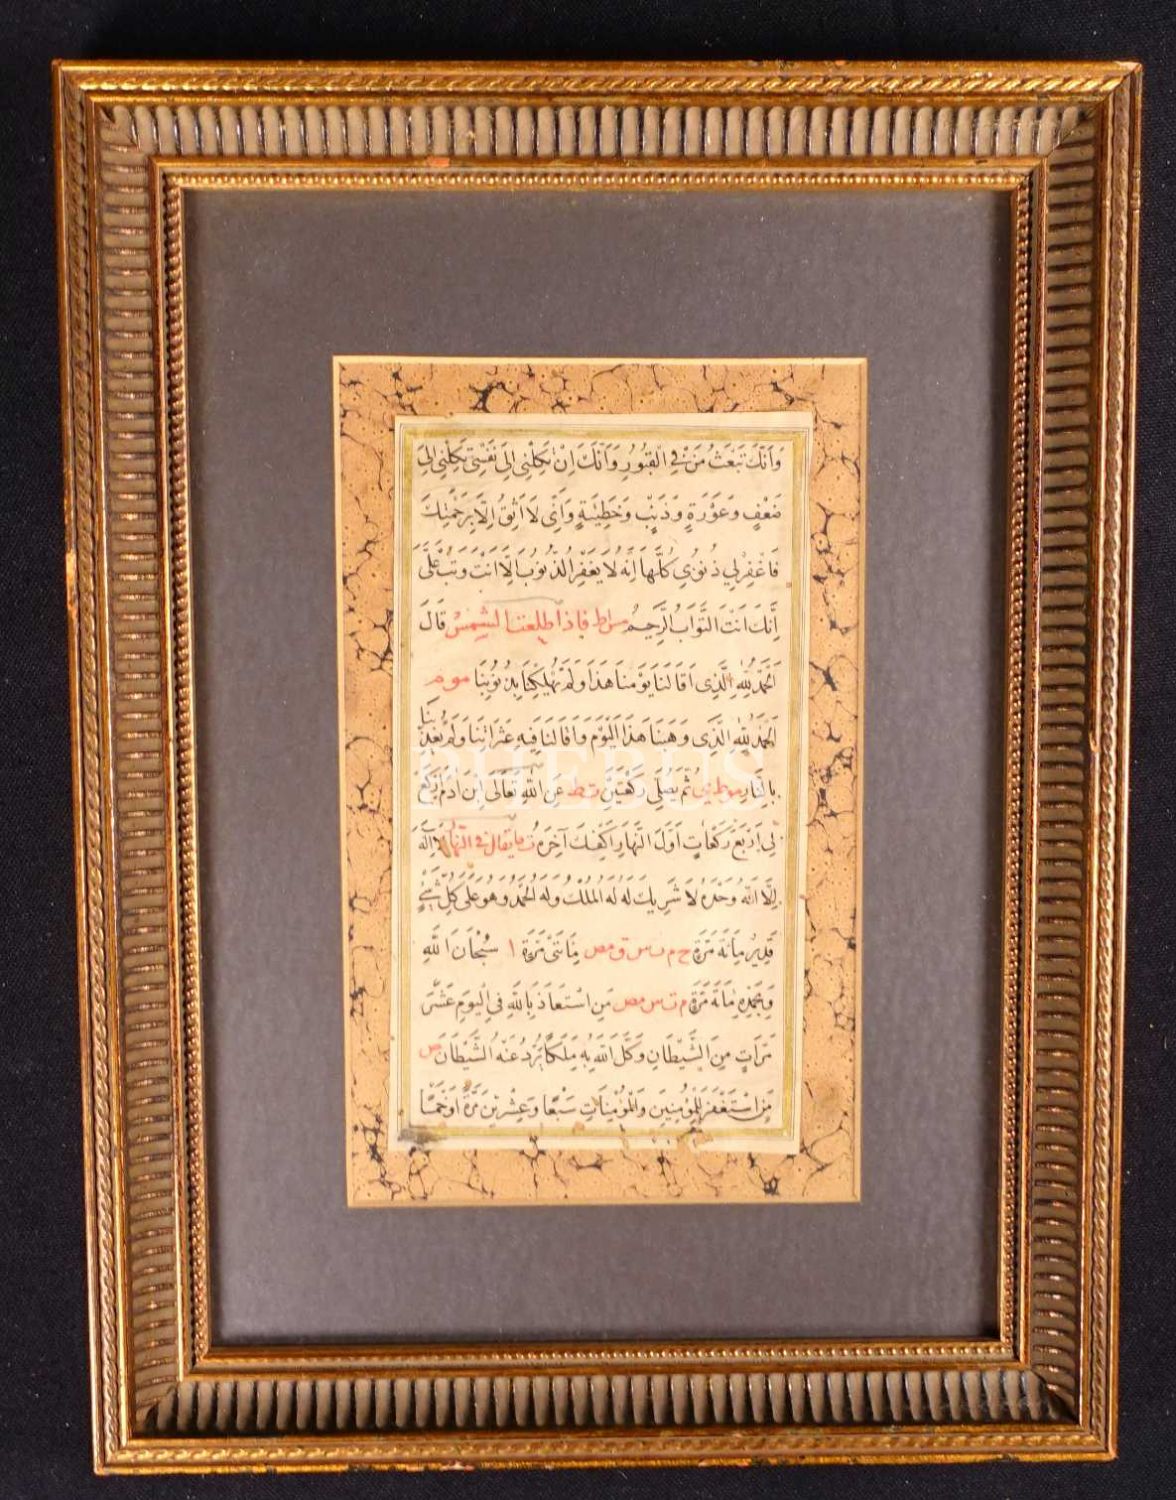 وَاَنَّكَ تَبْعَثُ مَنْ فِي الْقُبُورِ وَاَنَّكَ اِنْ تَكِلْنِي اِلَى نَفْسِي تَكِلْنِي اِلَى
ضَعْفٍ وَعَوْرَةٍ وَذَنْبٍ وَخَطِيئَةٍ وَاَنِّي لَا اَثِقُ اِلَّا بِرَحْمَتِكَ
فَاغْفِرْ لِي ذُنُوبِي كُلَّهَا اِنَّهُ لَا يَغْفِرُ الذُّنُوبَ اِلَّا اَنْتَ وَتُبْ عَلَيَّ
اِنَّكَ اَنْتَ التَّوَّابُ الرَّحِيمُ مس اط فاذا طلعت الشمس قَالَ
اَلْحَمْدُ لِلّٰهِ الَّذِي اَقَالَنَا يَوْمَنَا هَذَا وَلَمْ يُهْلِكْنَا بِذُنُوبِنَا مو م
اَلْحَمْدُ لِلّٰهِ الَّذِي وَهَبَنَا هَذَا الْيَوْمَ وَاَقَالَنَا فِيهِ عَثَرَاتِنَا وَلَمْ يُعَذِّبْنَا
بِالنَّارِ مو ط ى ثُمَّ يُصَلِّي رَكْعَتَيْنِ ت ط عَنِ اللّٰهِ تَعَالَى اِبْنَ اٰدَمَ ارْكَعْ
لِي اَرْبَعَ رَكَعَاتٍ اَوَّلَ النَّهَارِ اَكْفِكَ آخِرَهُ ت ما يقال في النهار لَا اِلٰهَ
اِلَّا اللّٰهُ وَحْدَهُ لَا شَرِيكَ لَهُ لَهُ الْمُلْكُ وَلَهُ الْحَمْدُ وَهُوَ عَلَى كُلِّ شَيْءٍ
قَدِيرٌ مِائَةَ مَرَّةٍ خ م ت س ق مص مِائَتَيْ مَرَّةٍ ا سُبْحَانَ اللّٰهِ
وَبِحَمْدِهِ مِائَةَ مَرَّةٍ م ت س مص مَنِ اسْتَعَاذَ بِاللّٰهِ فِي الْيَوْمِ عَشْرَ
مَرَّاتٍ مِنَ الشَّيْطَانِ وَكَّلَ اللّٰهُ بِهِ مَلَكًا يَرُدُّ عَنْهُ الشَّيْطَانَ ص
مَنِ اسْتَغْفَرَ لِلْمُؤْمِنِينَ وَالْمُؤْمِنَاتِ سَبْعًا وَعِشْرِينَ مَرَّةً اَوْ خَمْسًا